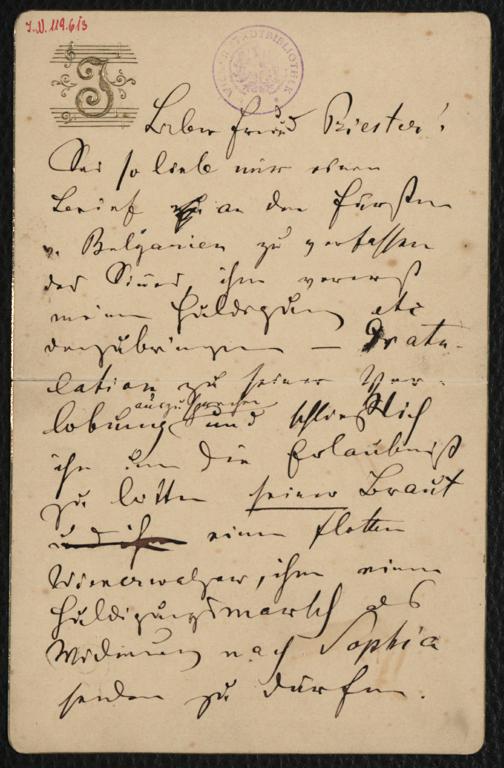 J.N. 119.613
WIENER STADTBIBLIOTHEK
J
Lieber Freund Priester!
Sei so lieb mir einen
Brief an den Fürsten
v. Bulgarien zu verfassen
des Sinnes, ihm vorerst
meine Huldigung etc
darzubringen — Gratu-
lation zu seiner Ver-
lobung auszusprechen und schließlich
ihn um die Erlaubniß
zu bitten seiner Braut
und ihm einen flotten
Wienerwalzer, ihm einen
Huldigungsmarsch als
Widmung nach Sophia
senden zu dürfen.